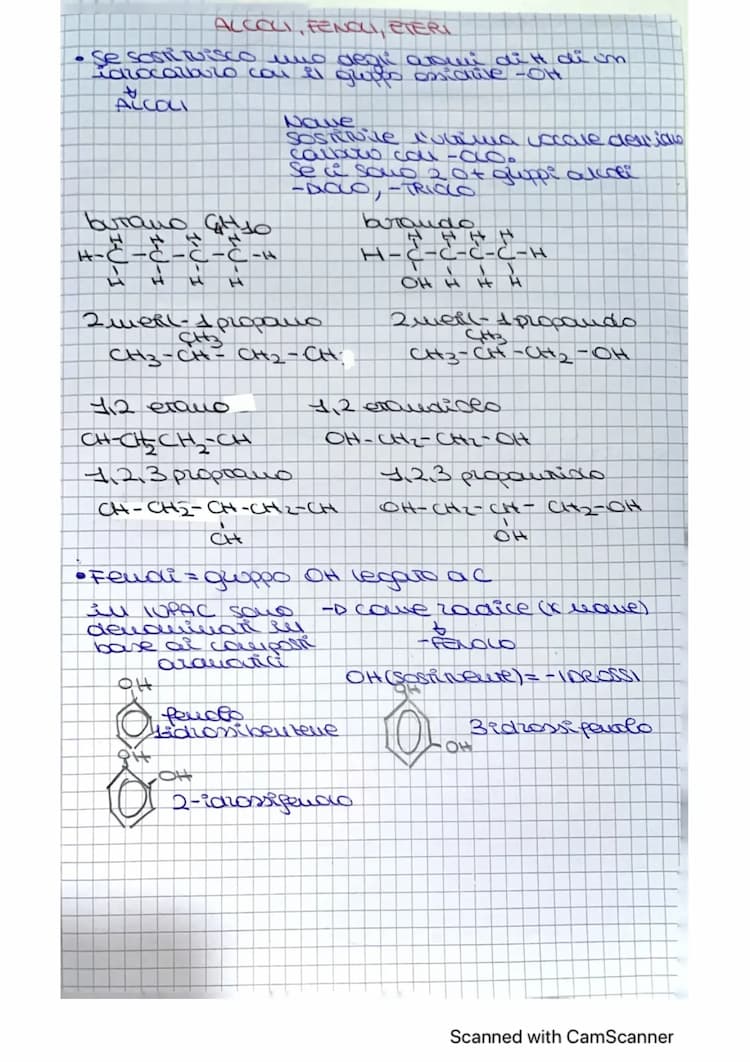 ALCOLI, FENOLI, ETERI
• Se sostituisco uno degli atomi di H di un
idrocarburo con il gruppo ossidrile -OH
↓
ALCOLI
Nome
sostituire l'ultima vocale dell'idro
carburo con -OLO.
Se ci sono 2 o + gruppi alcoli
-DIOLO, -TRIOLO
butano C4H10
butanolo
H H H H
H-C-C-C-C-H
H H H H
H H H H
H-C-C-C-C-H
OH H H H
2metil-1propano
2metil-1propanolo
CH3
CH3-CH-CH2-CH
CH3
CH3-CH-CH2-OH
1,2 etano
1,2 etandiolo
CH-CH2CH2-CH
OH-CH2-CH2-OH
1,2,3 propano
1,2,3 propantriolo
CH-CH2-CH-CH2-CH
CH
OH-CH2-CH-CH2-OH
OH
• Fenoli = gruppo OH legato a C
in IUPAC sono
denominati in
base ai composti
aromatici
→ come radice (x nome)
↓
-FENOLO
OH (sostituente) = -IDROSSI
OH
fenolo
1idrossibenzene
OH
OH
3idrossifenolo
OH
OH
2-idrossifenolo
Scanned with CamScanner